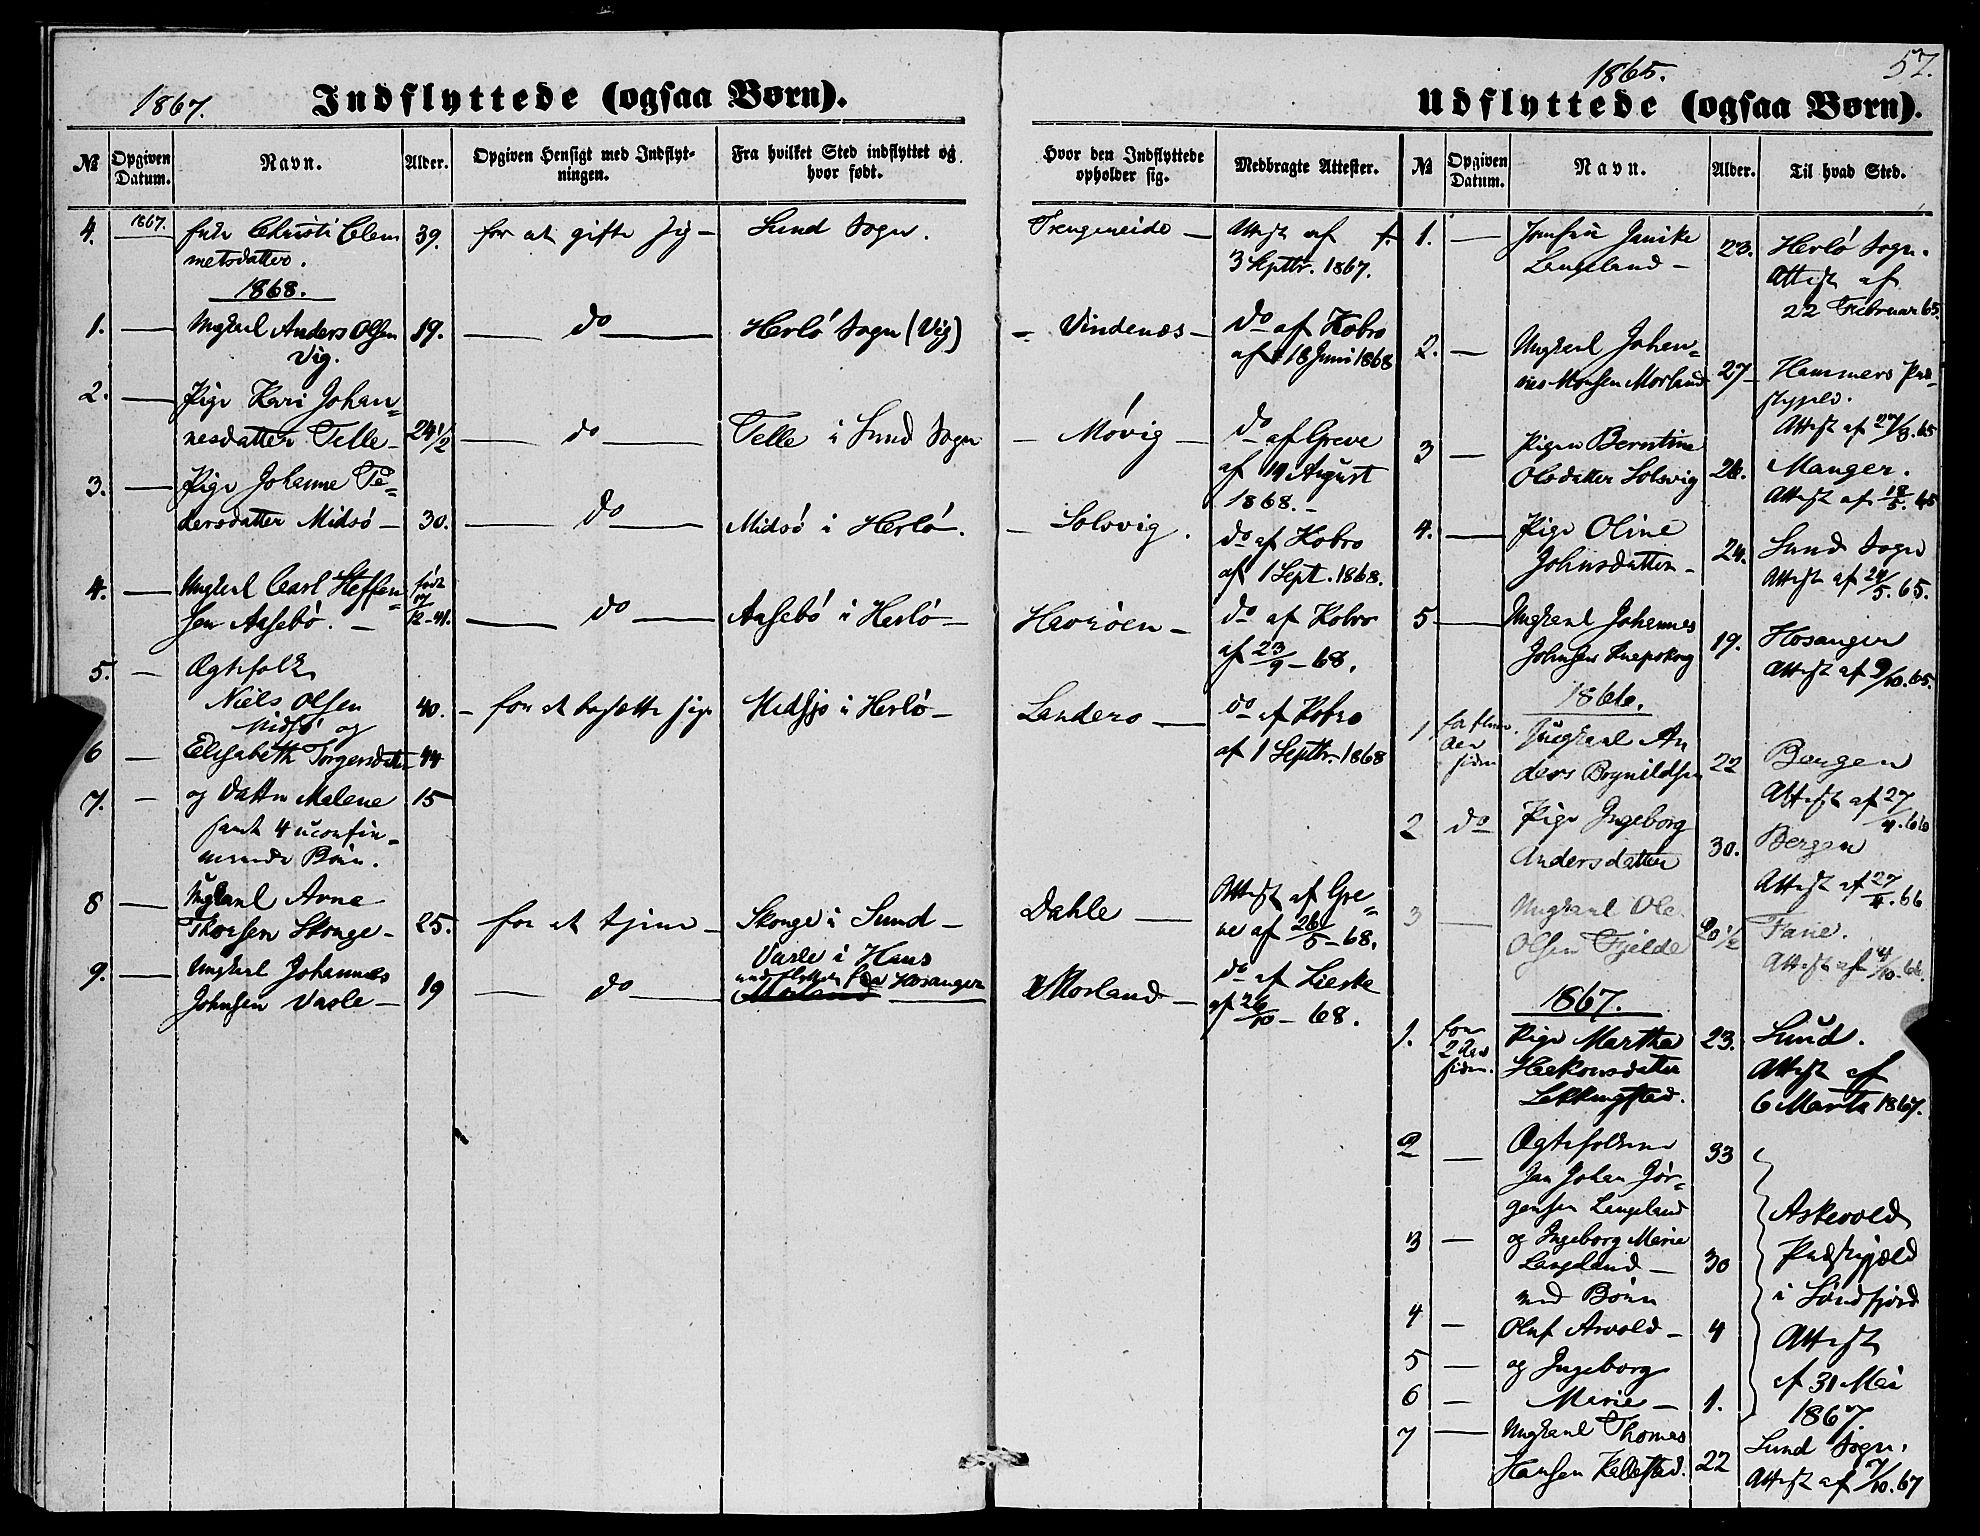 1867.
Indflyttede (ogsaa Børn).
№
Opgiven Datum.
Navn.
Alder.
Opgiven Hensigt med Indflytningen.
Fra hvilket Sted indflyttet og hvor født.
Hvor den Indflyttede opholder sig.
Medbragte Attester.
4. 1867. Christi Clem 39. for at gifte sig - Sund Sogn. Trengereide - Attest af
metsdatter. 3 Septbr. 1867.
1868.
1. Ungkarl Anders Olsen 19. do Herlø Sogn (Vig) - Vindenæs - do af Kobro
Vig. af 18 Juni 1868
2. Pige Kari Johan=
nesdatter Telle - 24 1/2 do Telle i Sund Sogn - Møvig - do af Greve
af 19 August
1868. -
3. Pige Johanne Pe=
dersdatter Midsø - 30. do Midsø i Herlø. - Solsvig. do af Kobro
af 1 Sept. 1868.
4. Ungkarl Carl Steffen= født 17/12-41. do Aasebø i Herlø - Havrøen - do af Kobro
sen Aasebø. - af 23/9 - 68.
5. - Ægtefolk
Niels Olsen 40. - for at besætte sig Midsjø i Herlø - Landero - do af Kobro
Midsø og af 1 Septbr. 1868
6 - Elisabeth Torgersdatter 44
7. - og Datter Malene 15
samt 4 uconfir=
merede Børn.
8 Ungkarl Arne Attest af Gre=
Thorsen Skoge - 25. for at tjene - Skoge i Sund - Dahle - ve af 26/5 - 68.
9. Ungkarl Johannes Varle i Haus
indflyttet fra Hosanger
Johnsen Varle - 19 do Morland - do af Lieske
af 26/10 - 68.
57.
1865.
Udflyttede (ogsaa Børn).
№
Opgiven Datum.
Navn.
Alder.
Til hvad Sted.
1. Jomfru Janike 23. Herlø Sogn.
Langeland - Attest af
22 Februar 65.
2. - Ungkarl Johan=
nes Monsen Morland 27 - Hammers Præ=
stegjeld.
Attest af 27/3. 65
3 - Pigen Berntine
Olsdatter Solsvig 26. Manger.
Attest af 18/5. 65
4. Pige Oline
Johnsdatter - 24. Sund Sogn
Attest af 24/5. 65.
5 Ungkarl Johannes
Johnsen Knapskog 19. Hosanger
Attest af 9/10. 65.
1866.
1 for flere Aar siden Ungkarl An
ders Brynildsen 22 Bergen
Attest af 27/4. 66
2 do Pige Ingeborg
Andersdatter 30. Bergen
Attest af 27/4. 66
3 Ungkarl Ole
Olsen Fjelde 20 1/2 Fane.
Attest af 4/10. 66.
1867.
1. for 2 Aar siden. Pige Martha 23. Sund.
Haakonsdatter Attest af
Lokkingstad. 6 Marts 1867.
2 - Ægtefolkene 33
Jan Johan Jør=
gensen Langeland
3 - og Ingeborg Marie
Langeland - 30
med Børn
4 - Oluf Arvold - 4
5 - og Ingeborg
6 - Marie - 1.
Askevold
Præstegjeld
i Søndfjord
Attest
af 31 Mai
1867.
7 Ungkarl Thomas Sund Sogn.
Hansen Kallestad. 22 Attest af 7/10. 67